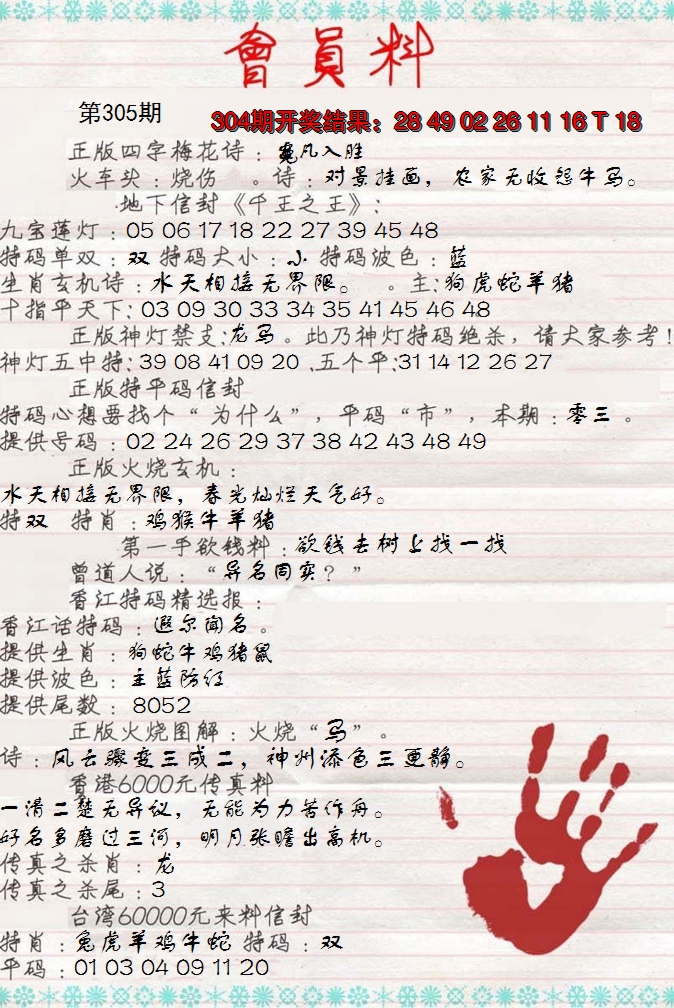 會員料
第305期
304期开奖结果：28 49 02 26 11 16 T 18
正版四字梅花诗：冕凡入胜
火车头：烧伤 。诗：对景挂画，农家无收怨牛马。
地下信封《千王之王》：
九宝莲灯：05 06 17 18 22 27 39 45 48
特码单双：双 特码大小：小 特码波色：蓝
生肖玄机诗：水天相接无界限。 。主：狗虎蛇羊猪
十指平天下：03 09 30 33 34 35 41 45 46 48
正版神灯禁支：龙马。此乃神灯特码绝杀，请大家参考！
神灯五中特：39 08 41 09 20 .五个平：31 14 12 26 27
正版特平码信封
特码心想要找个“为什么”，平码“市”，本期：零三 。
提供号码：02 24 26 29 37 38 42 43 48 49
正版火烧玄机：
水天相接无界限，春光灿烂天气好。
特双 特肖：鸡猴牛羊猪
第一手欲钱料：欲钱去树上找一找
曾道人说：“异名同实？”
香江特码精选报：
香江话特码：遐尔闻名。
提供生肖：狗蛇牛鸡猪鼠
提供波色：主蓝防红
提供尾数：8052
正版火烧图解：火烧“马”。
诗：风云骤变三成二，神州添色三更静。
香港6000元传真料
一清二楚无异议，无能为力苦作舟。
好名多磨过三河，明月张瞻出高机。
传真之杀肖：龙
传真之杀尾：3
台湾60000元来料信封
特肖：兔虎羊鸡牛蛇 特码：双
平码：01 03 04 09 11 20